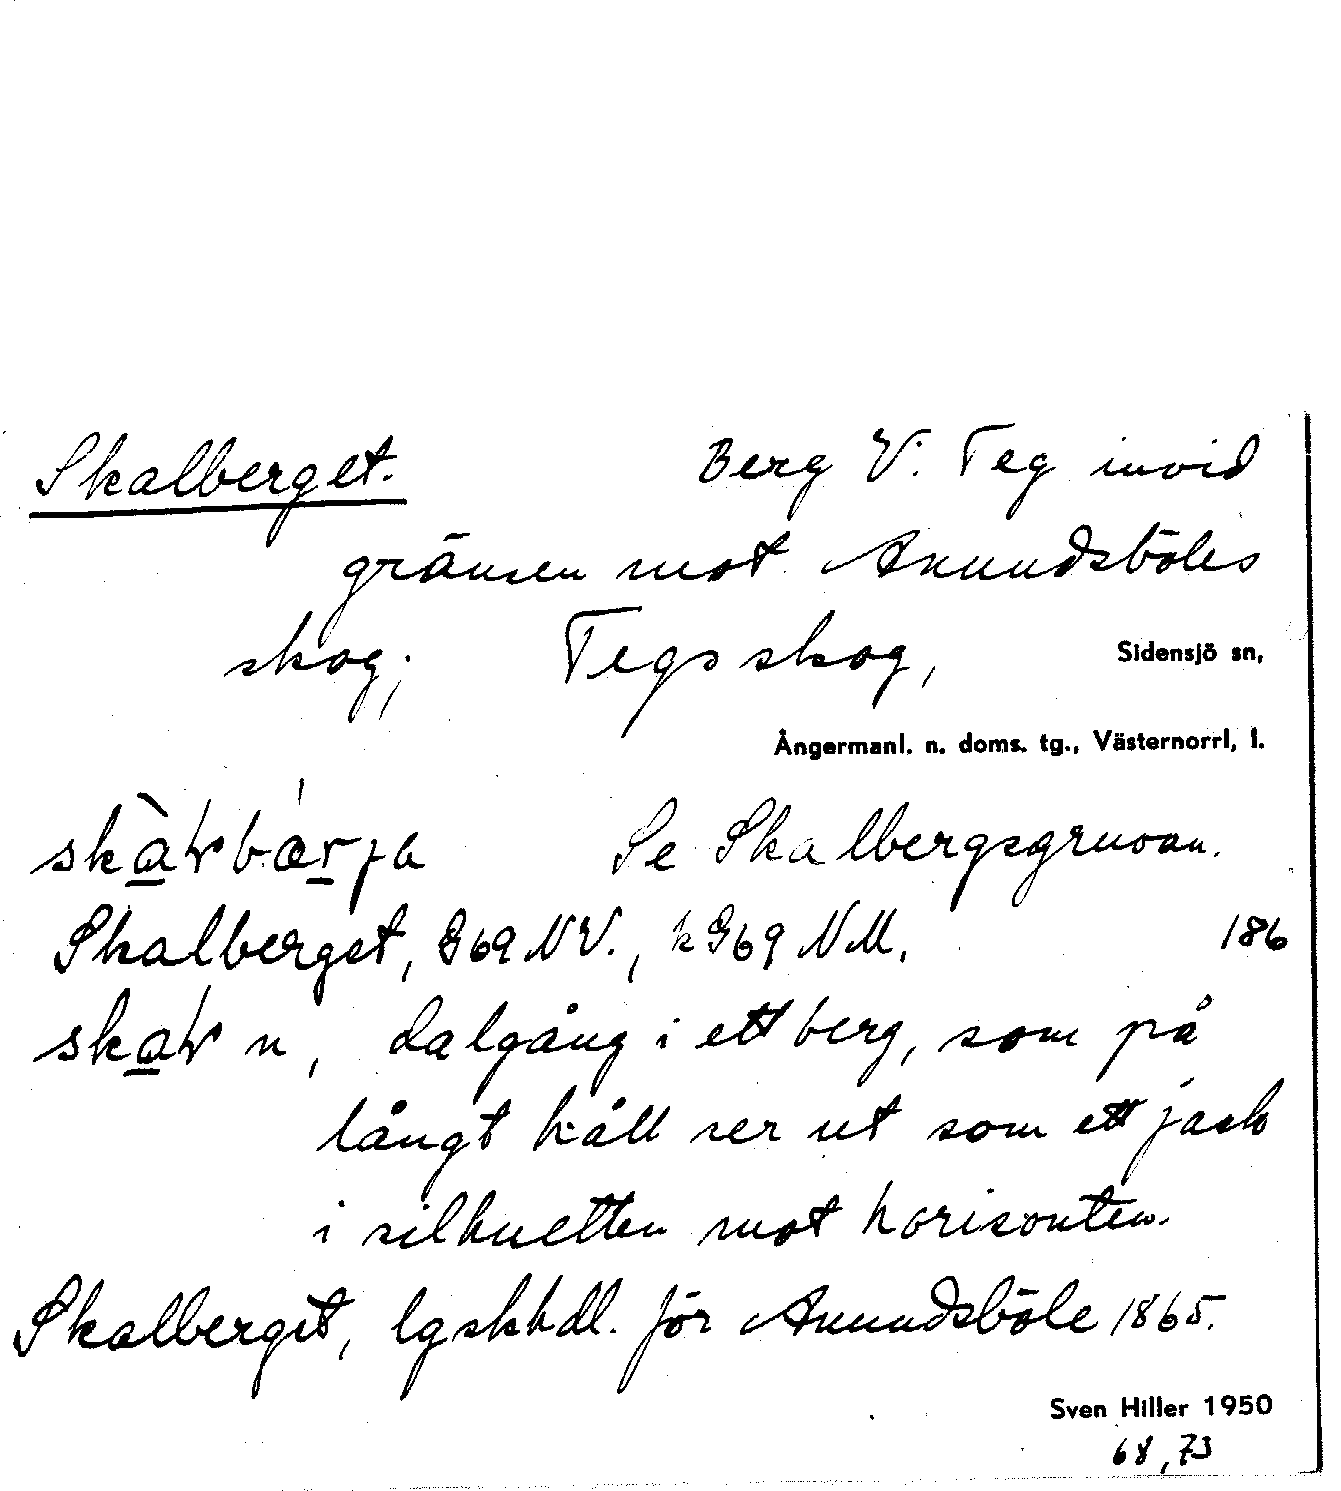 Skalberget. Berg V. Teg invid
gränsen mot Anundsböles
skog; Tegsskog, Sidensjö sn,
Ångermanl. n. doms. tg., Västernorrl, l.
Se Skalbergsgruvan.
Skalberget, G69 NV., k G69 NM. 186
n, dalgång i ett berg, som på
långt håll ser ut som ett jack
i silhuetten mot horisonten.
Skalberget, lgskhdl. för Anundsböle 1865.
Sven Hiller 1950
68, 73